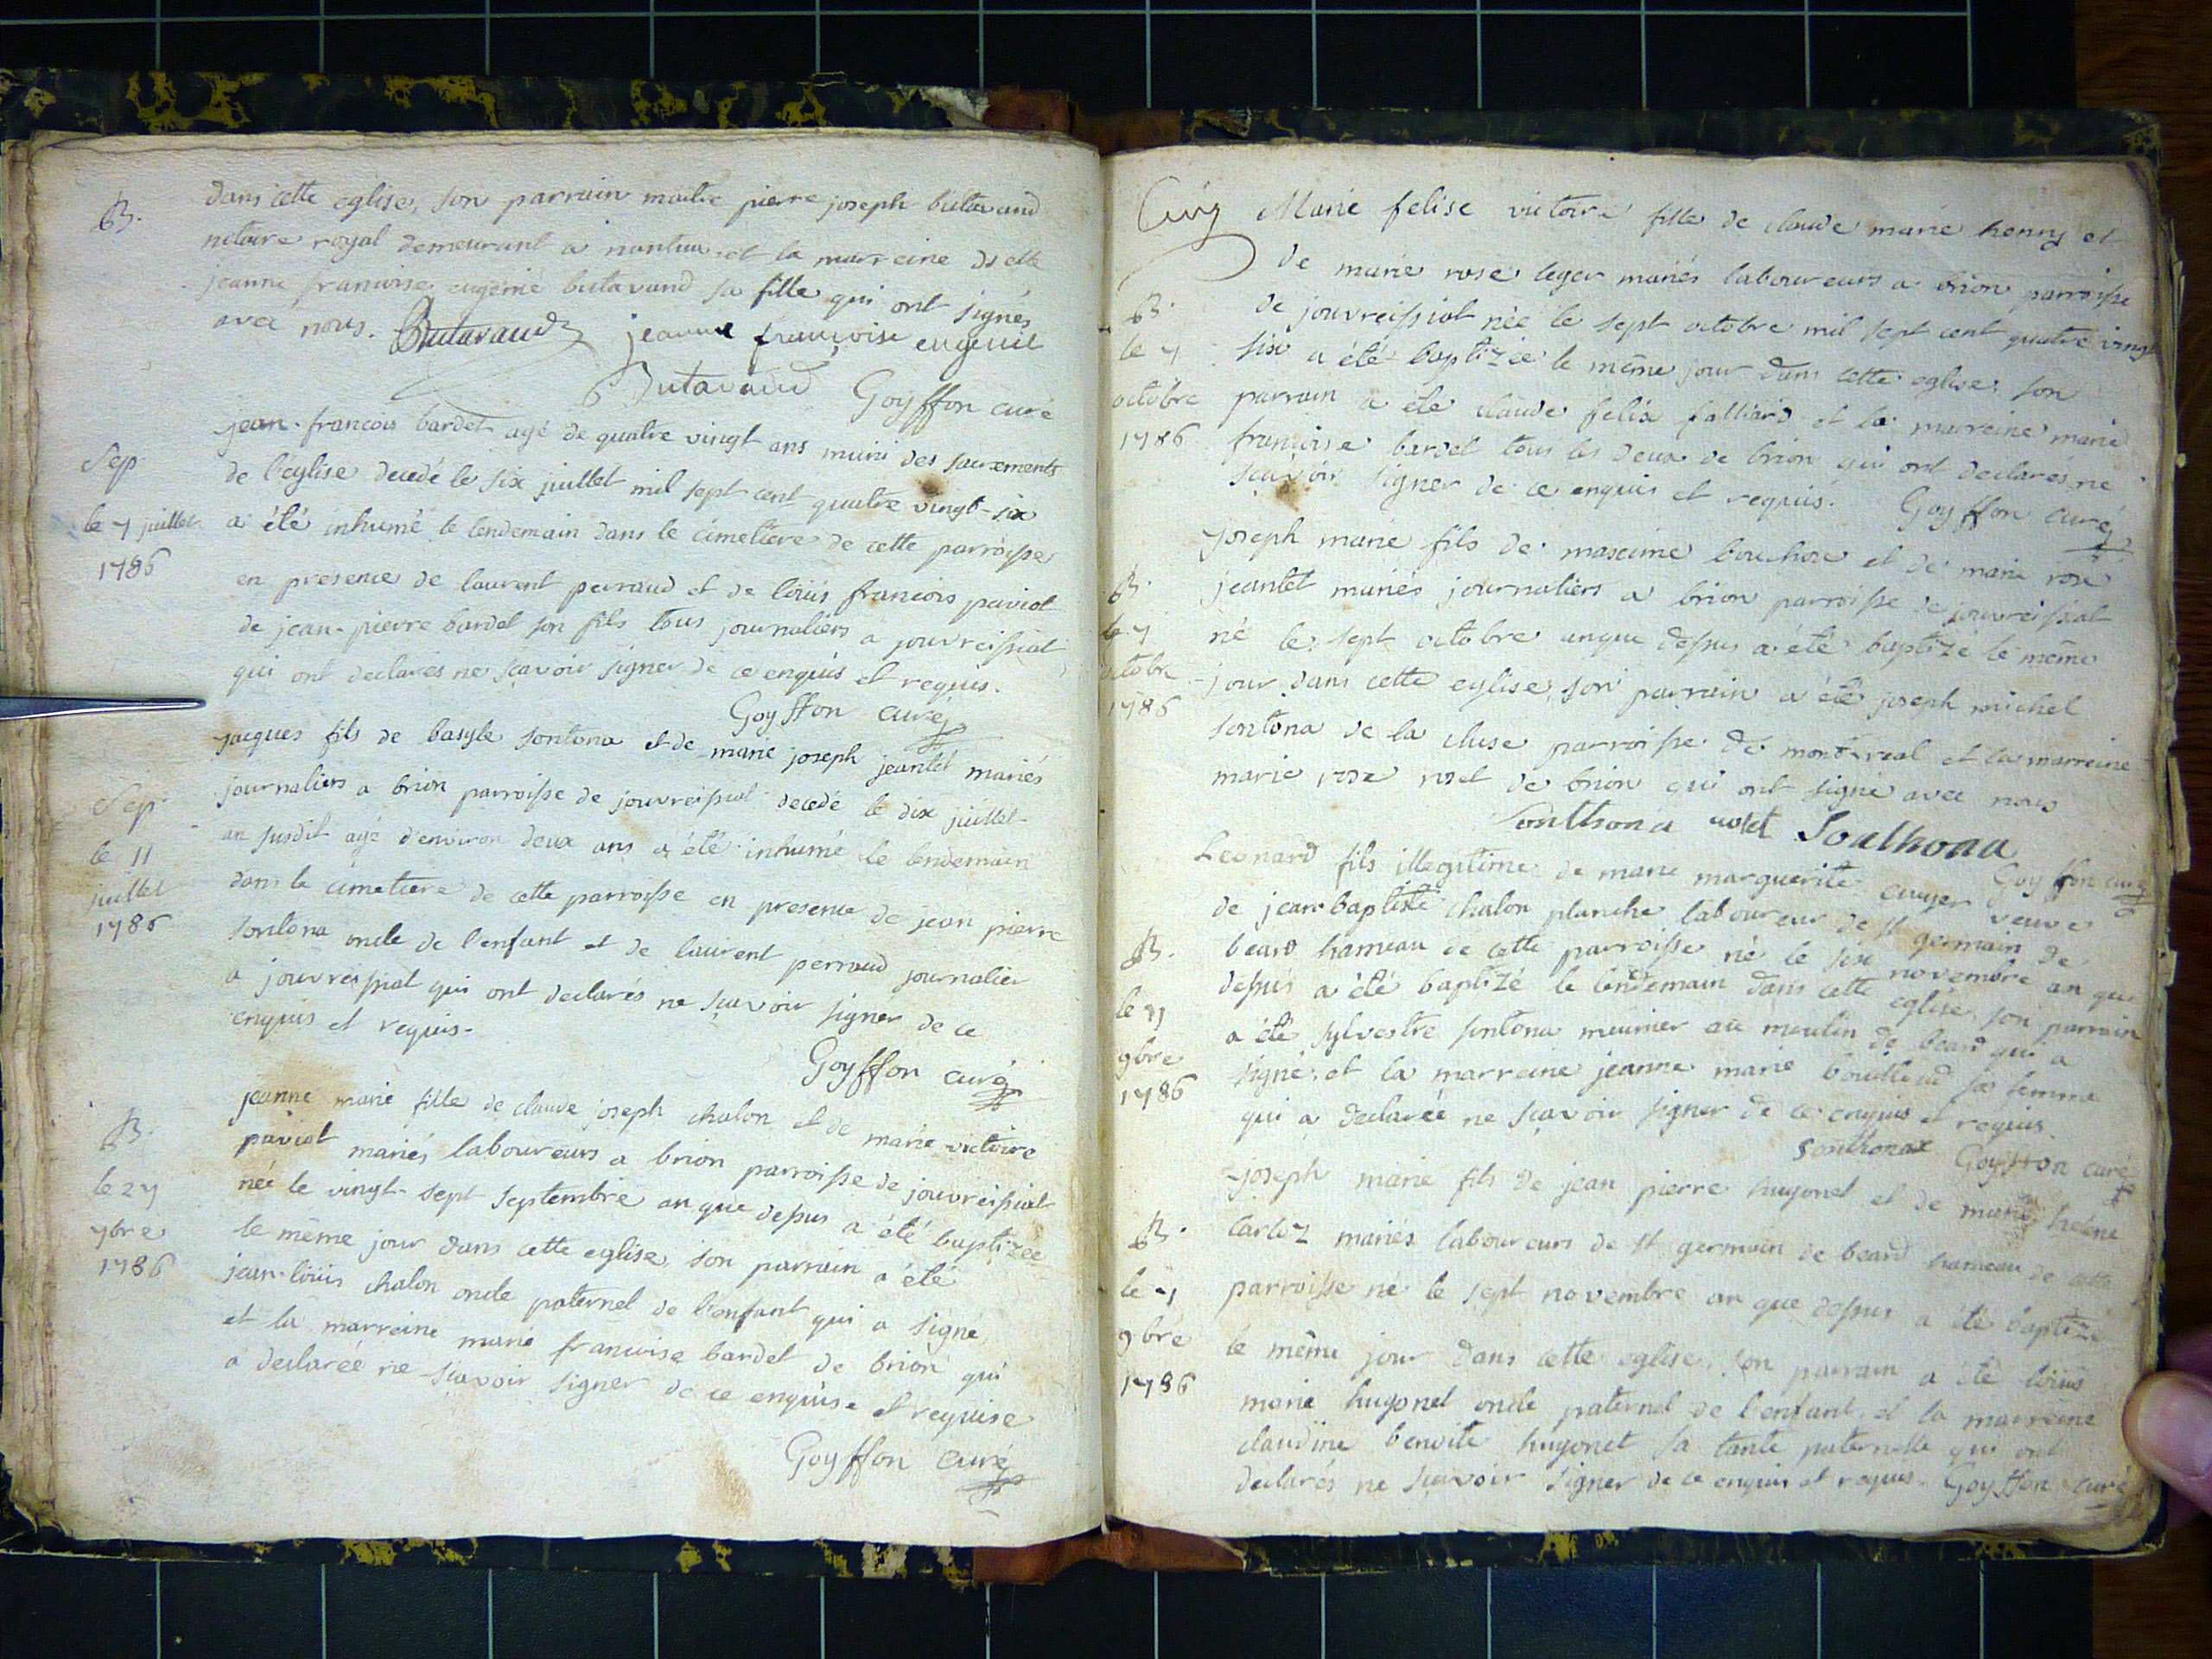 B.
dans cette eglise, son parrain maitre pierre joseph butavand
notaire royal demeurant a nantua et la marreine dselle
jeanne francoise eugenie butavand sa fille qui ont signés
avec nous. Butavand jeanne françoise eugenie
Butavand Goyffon curé
Sep
le 7 juillet
1786
jean-francois bardet agé de quatre vingt ans muni des sacrements
de l'eglise decedé le six juillet mil sept cent quatre vingt-six
a été inhumé le lendemain dans le cimetiere de cette parroisse
en presence de laurent perraud et de loüis francois paviot
de jean-pierre bardet son fils tous journaliers a jouvreissiat
qui ont declarés ne sçavoir signer de ce enquis et requis.
Goyffon curé
Sep
le 11
juillet
1786
jacques fils de basyle sontona et de marie joseph jeantet mariés
journaliers a brion parroisse de jouvreissiat decedé le dix juillet
an susdit agé d'environ deux ans a été inhumé le lendemain
dans le cimetiere de cette parroisse en presence de jean pierre
sontona oncle de l'enfant et de laurent perraud journalier
a jouvreissiat qui ont declarés ne sçavoir signer de ce
enquis et requis.
Goyffon curé
B.
le 27
7bre
1786
jeanne marie fille de claude joseph chalon et de marie victoire
paviot mariés laboureurs a brion parroisse de jouvreissiat
née le vingt-sept septembre an que dessus a été baptizée
le même jour dans cette eglise, son parrain a été
jean-loüis chalon oncle paternel de l'enfant qui a signé
et la marreine marie francoise bardet de brion qui
a declarée ne sçavoir signer de ce enquise et requise
Goyffon curé
B.
le 7
octobre
1786
Marie felise victoire fille de claude marie henry et
de marie rose leger mariés laboureurs a brion parroisse
de jouvreissiat née le sept octobre mil sept cent quatre vingt
six a été baptizée le même jour dans cette eglise, son
parrain a été claude felix falliard et la marreine marie
francoise bardet tous les deux de brion qui ont declarés ne
sçavoir signer de ce enquis et requis. Goyffon curé
B.
le 7
octobre
1786
joseph marie fils de maxime bouchon et de marie rose
jeantet mariés journaliers a brion parroisse de jouvreissiat
né le sept octobre an que dessus a été baptizé le même
jour dans cette eglise, son parrain a été joseph michel
sontona de la cluse parroisse de montreal et la marreine
marie rose rosset de brion qui ont signé avec nous
Sonthona Sonthona
Goyffon curé
B.
le 7
9bre
1786
Leonard fils illegitime de marie marguerite cuyer veuve
de jean-baptiste chalon planche laboureur de st germain de
beard hameau de cette parroisse né le six novembre an que
dessus a été baptizé le lendemain dans cette eglise, son parrain
a été sylvestre sontona meunier au moulin de beard qui a
signé, et la marreine jeanne marie bouilloud sa femme
qui a declarée ne sçavoir signer de ce enquis et requis.
Sonthonax Goyffon curé
B.
le 7
9bre
1786
joseph marie fils de jean pierre hugonet et de marie helene
carloz mariés laboureurs de st germain de beard hameau de cette
parroisse né le sept novembre an que dessus a été baptizé
le même jour dans cette eglise, son parrain a été loüis
marie hugonet oncle paternel de l'enfant, et la marreine
claudine benoite hugonet sa tante paternelle qui ont
declarés ne sçavoir signer de ce enquis et requis. Goyffon curé